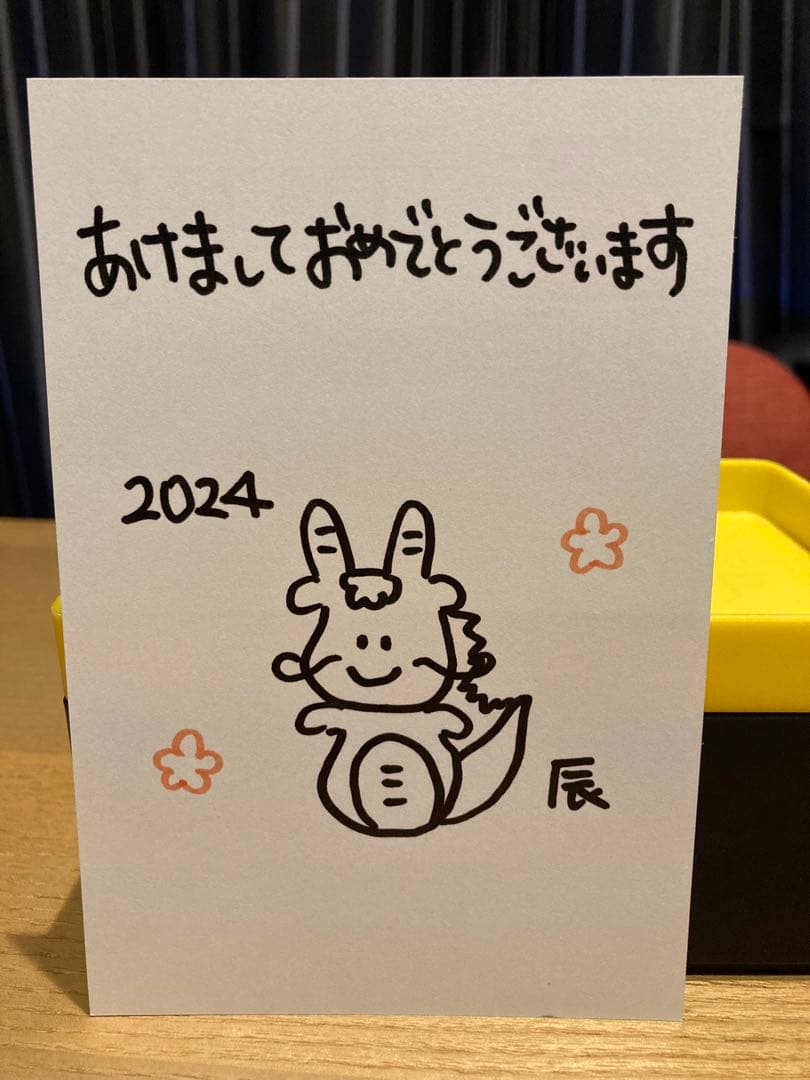 あけましておめでとうございます
2024
辰